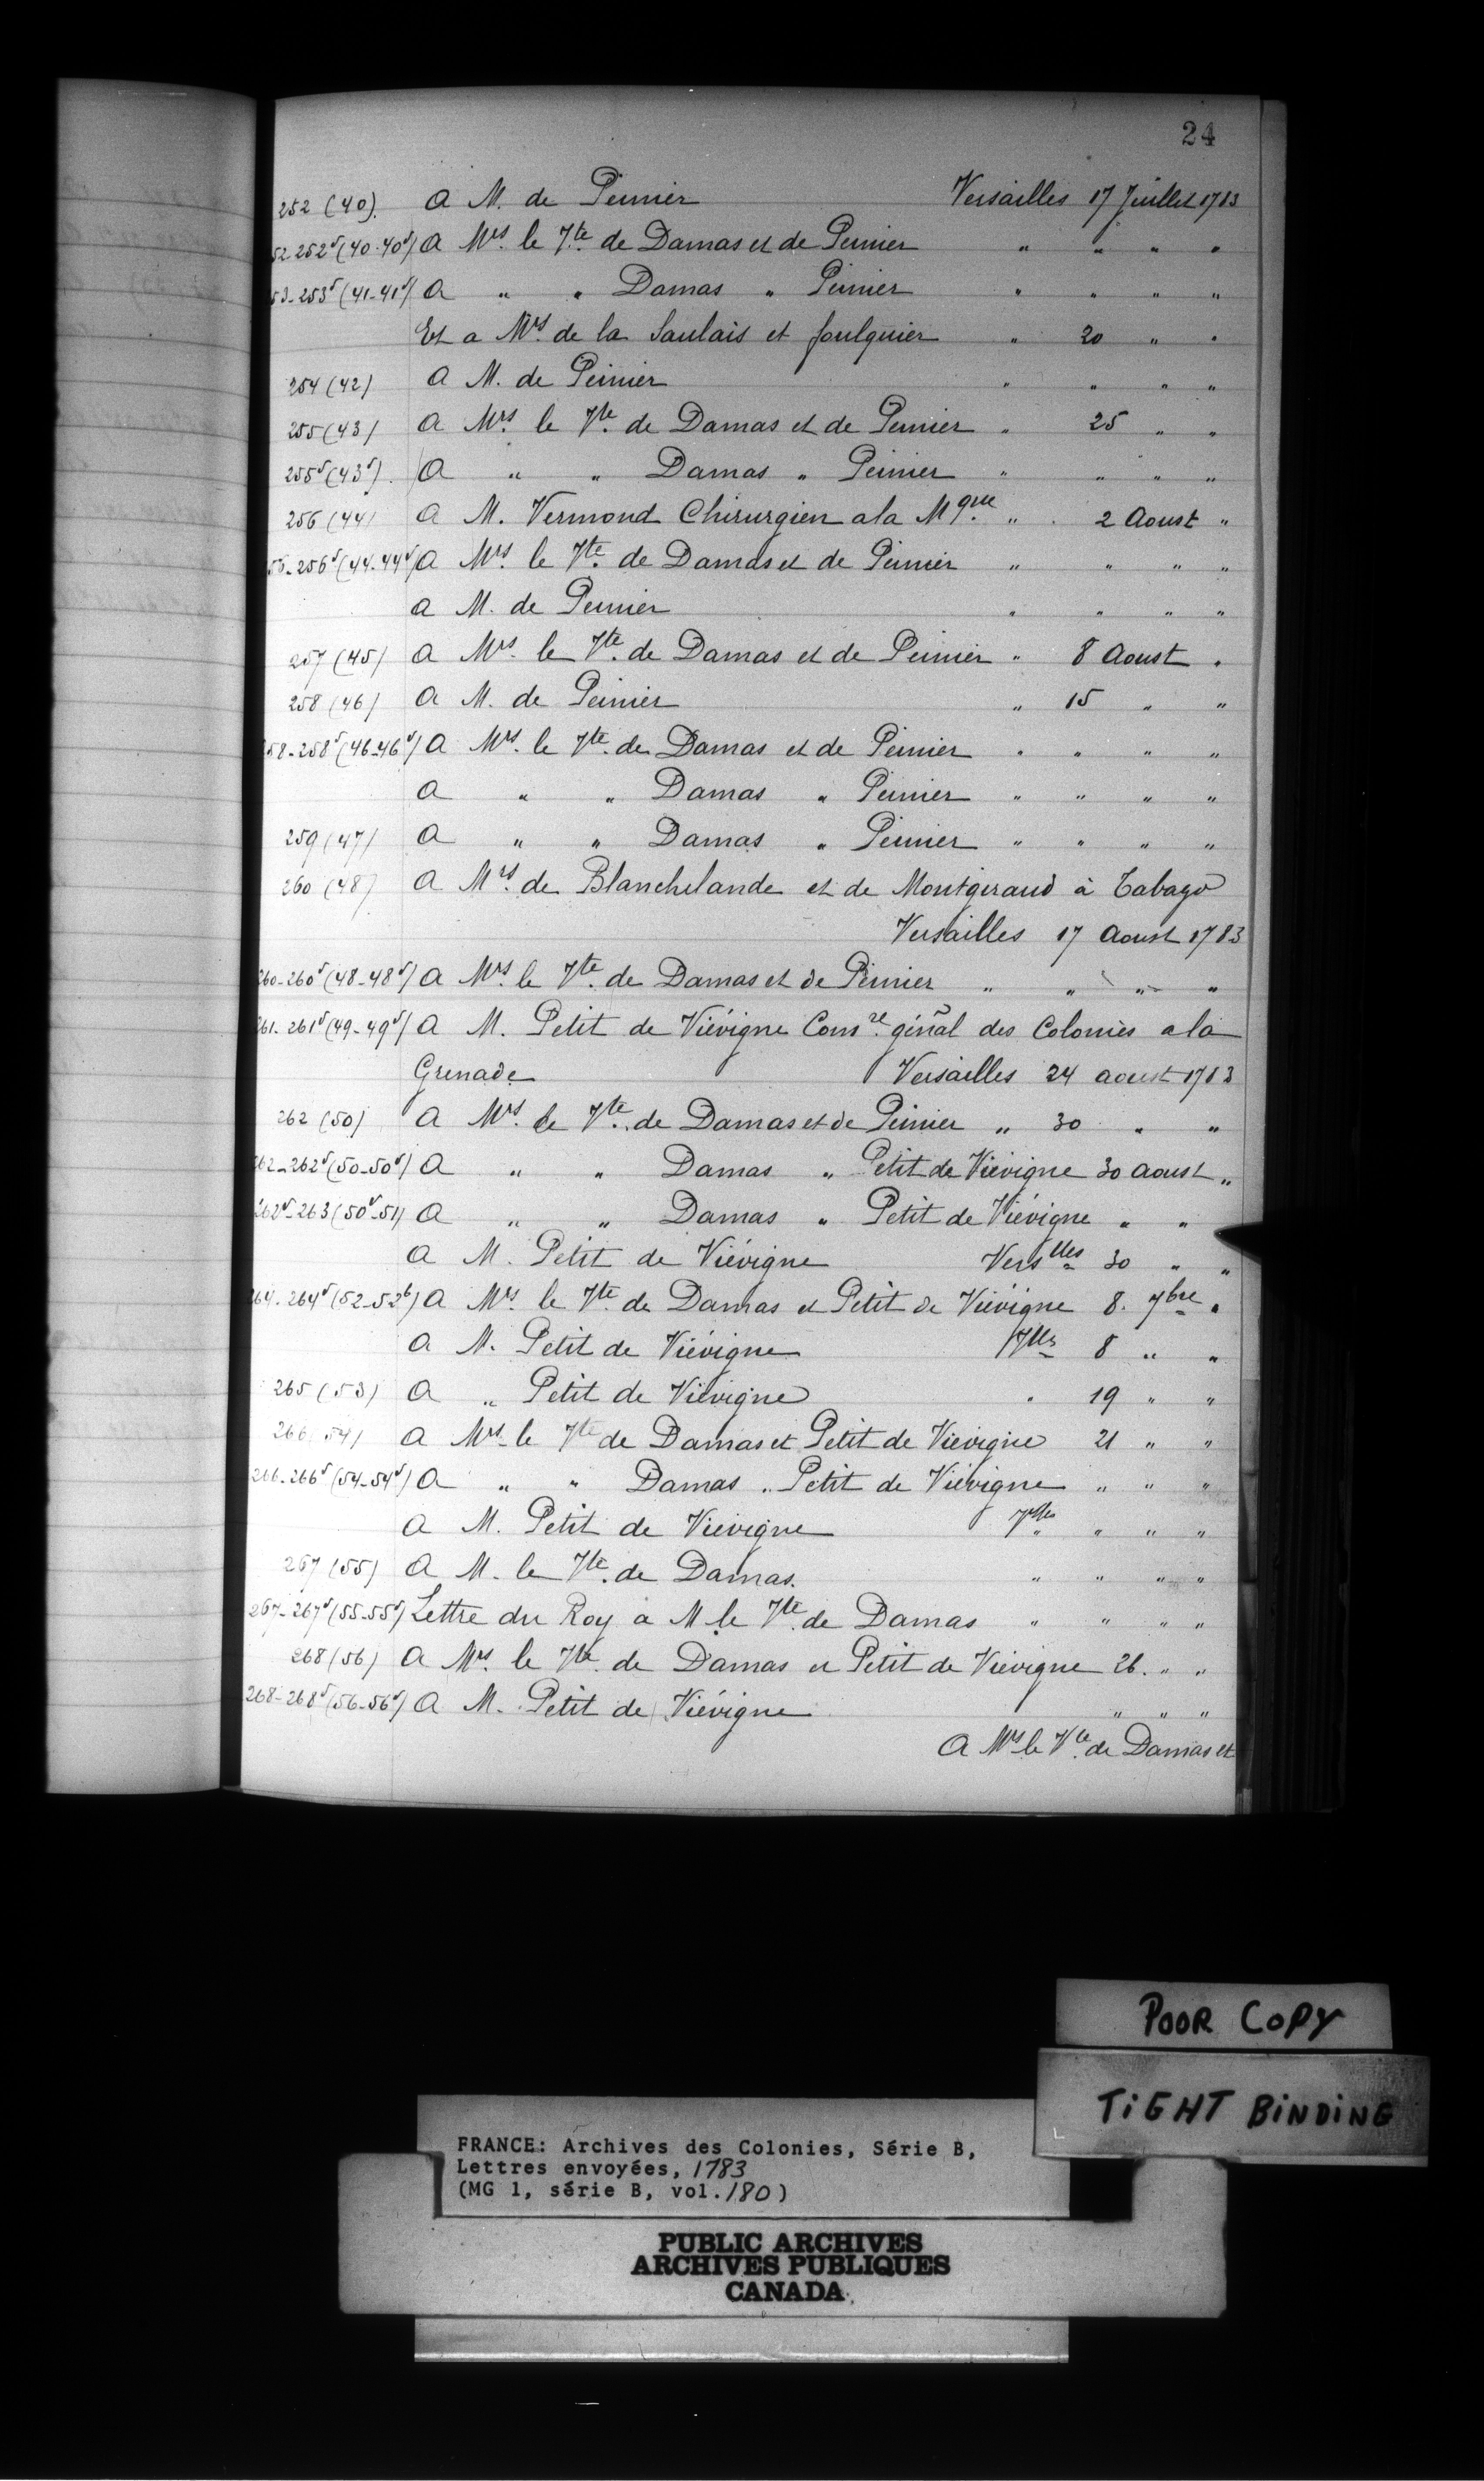 24
252 (40). A M. de Peinier Versailles 17 Juillet 1783
52-252v (40-40v) A Mrs. le Vte. de Damas et de Peinier " " " "
53-253v (41-41v) A " " Damas " Peinier " " " "
Et a Mrs. de la Saulais et foulquier " 20 " "
254 (42) A M. de Peinier " " " "
255 (43) A Mrs. le Vte. de Damas et de Peinier " 25 " "
255v (43v). A " " Damas " Peinier " " " "
256 (44) A M. Vermond Chirurgien a la Mque. " 2 Aoust "
56-256v (44-44v) A Mrs. le Vte. de Damas et de Peinier " " " "
a M. de Peinier " " " "
257 (45) A Mrs. le Vte. de Damas et de Peinier " 8 Aoust "
258 (46) A M. de Peinier " 15 " "
258-258v (46-46v) A Mrs. le Vte. de Damas et de Peinier " " " "
A " " Damas " Peinier " " " "
259 (47) A " " Damas " Peinier " " " "
260 (48) A Mrs. de Blanchelande et de Montgeraud à Tabago
Versailles 17 Aoust 1783
260-260v (48-48v) A Mrs. le Vte. de Damas et de Peinier " " " "
261-261v (49-49v) A M. Petit de Viévigne Comre. génãl des Colonies a la
Grenade Versailles 24 aoust 1783
262 (50) A Mrs. le Vte. de Damas et de Peinier " 30 " "
262-262v (50-50v) A " " Damas " Petit de Viévigne 30 Aoust "
262v-263 (50v-51) A " " Damas " Petit de Viévigne " "
A M. Petit de Viévigne Verslles 30 " "
264-264v (52-52v) A Mrs. le Vte. de Damas et Petit de Viévigne 8. 7bre "
A M. Petit de Viévigne Vlles 8 " "
265 (53) A " Petit de Viévigne " 19 " "
266 (54) A Mrs. le Vte de Damas et Petit de Viévigne 21 " "
266-266v (54-54v) A " " Damas " Petit de Viévigne " " "
A M. Petit de Viévigne Vlles " " "
267 (55) A M. le Vte. de Damas. " " " "
267-267v (55-55v) Lettre du Roy a M. le Vte. de Damas " " " "
268 (56) A Mrs. le Vte. de Damas et Petit de Viévigne 26. " "
268-268v (56-56v) A M. Petit de Viévigne " " "
A Mrs le Vte. de Damas et
POOR COPY
TiGHT BiNDiNG
FRANCE: Archives des Colonies, Série B,
Lettres envoyées, 1783
(MG 1, série B, vol. 180)
PUBLIC ARCHIVES
ARCHIVES PUBLIQUES
CANADA